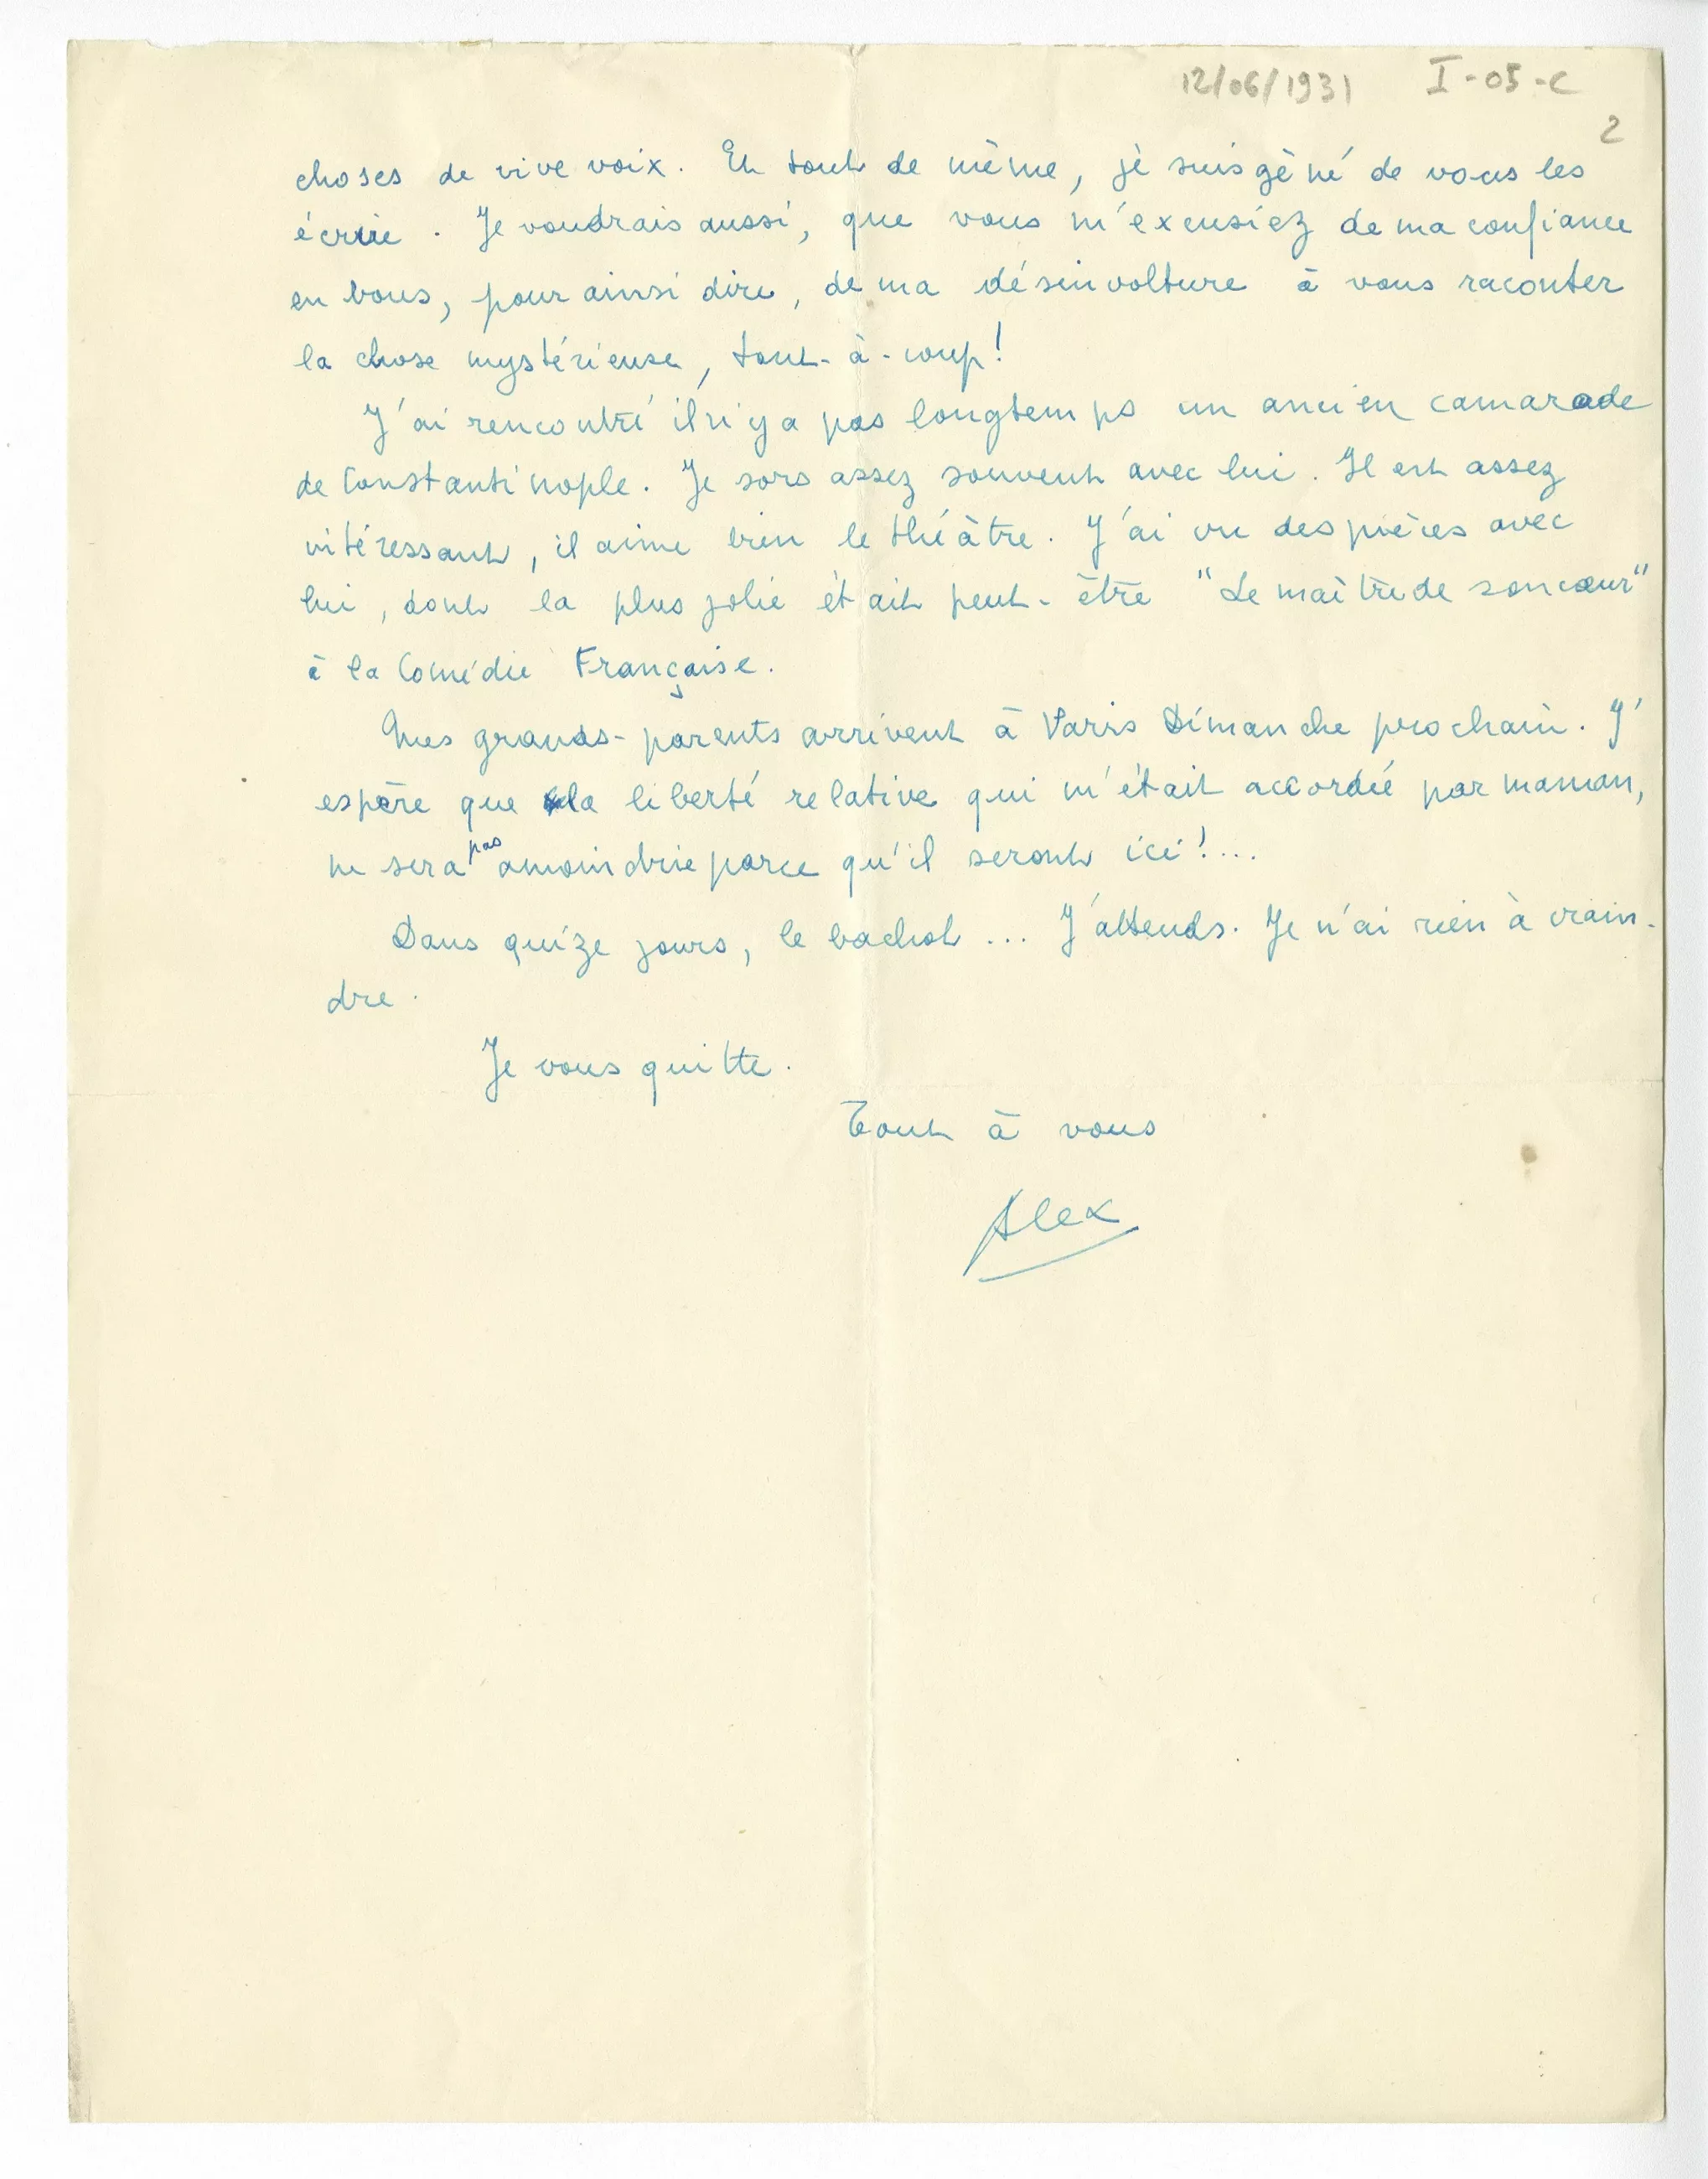 12/06/1931 I-05-C
2
choses de vive voix. Et tout de même, je suis gêné de vous les
écrire. Je voudrais aussi, que vous m'excusiez de ma confiance
en vous, pour ainsi dire, de ma désinvolture à vous raconter
la chose mystérieuse, tout-à-coup!
J'ai rencontré il n'y a pas longtemps un ancien camarade
de Constantinople. Je sors assez souvent avec lui. Il est assez
intéressant, il aime bien le théâtre. J'ai vu des pièces avec
lui, dont la plus jolie était peut-être "Le maître de son cœur"
à la Comédie Française.
Mes grands-parents arrivent à Paris Dimanche prochain. J'
espère que la liberté relative qui m'était accordée par maman,
ne sera pas amoindrie parce qu'il seront ici!...
Dans quize jours, le bachot... J'attends. Je n'ai rien à crain-
dre.
Je vous quitte.
Tout à vous
Alex